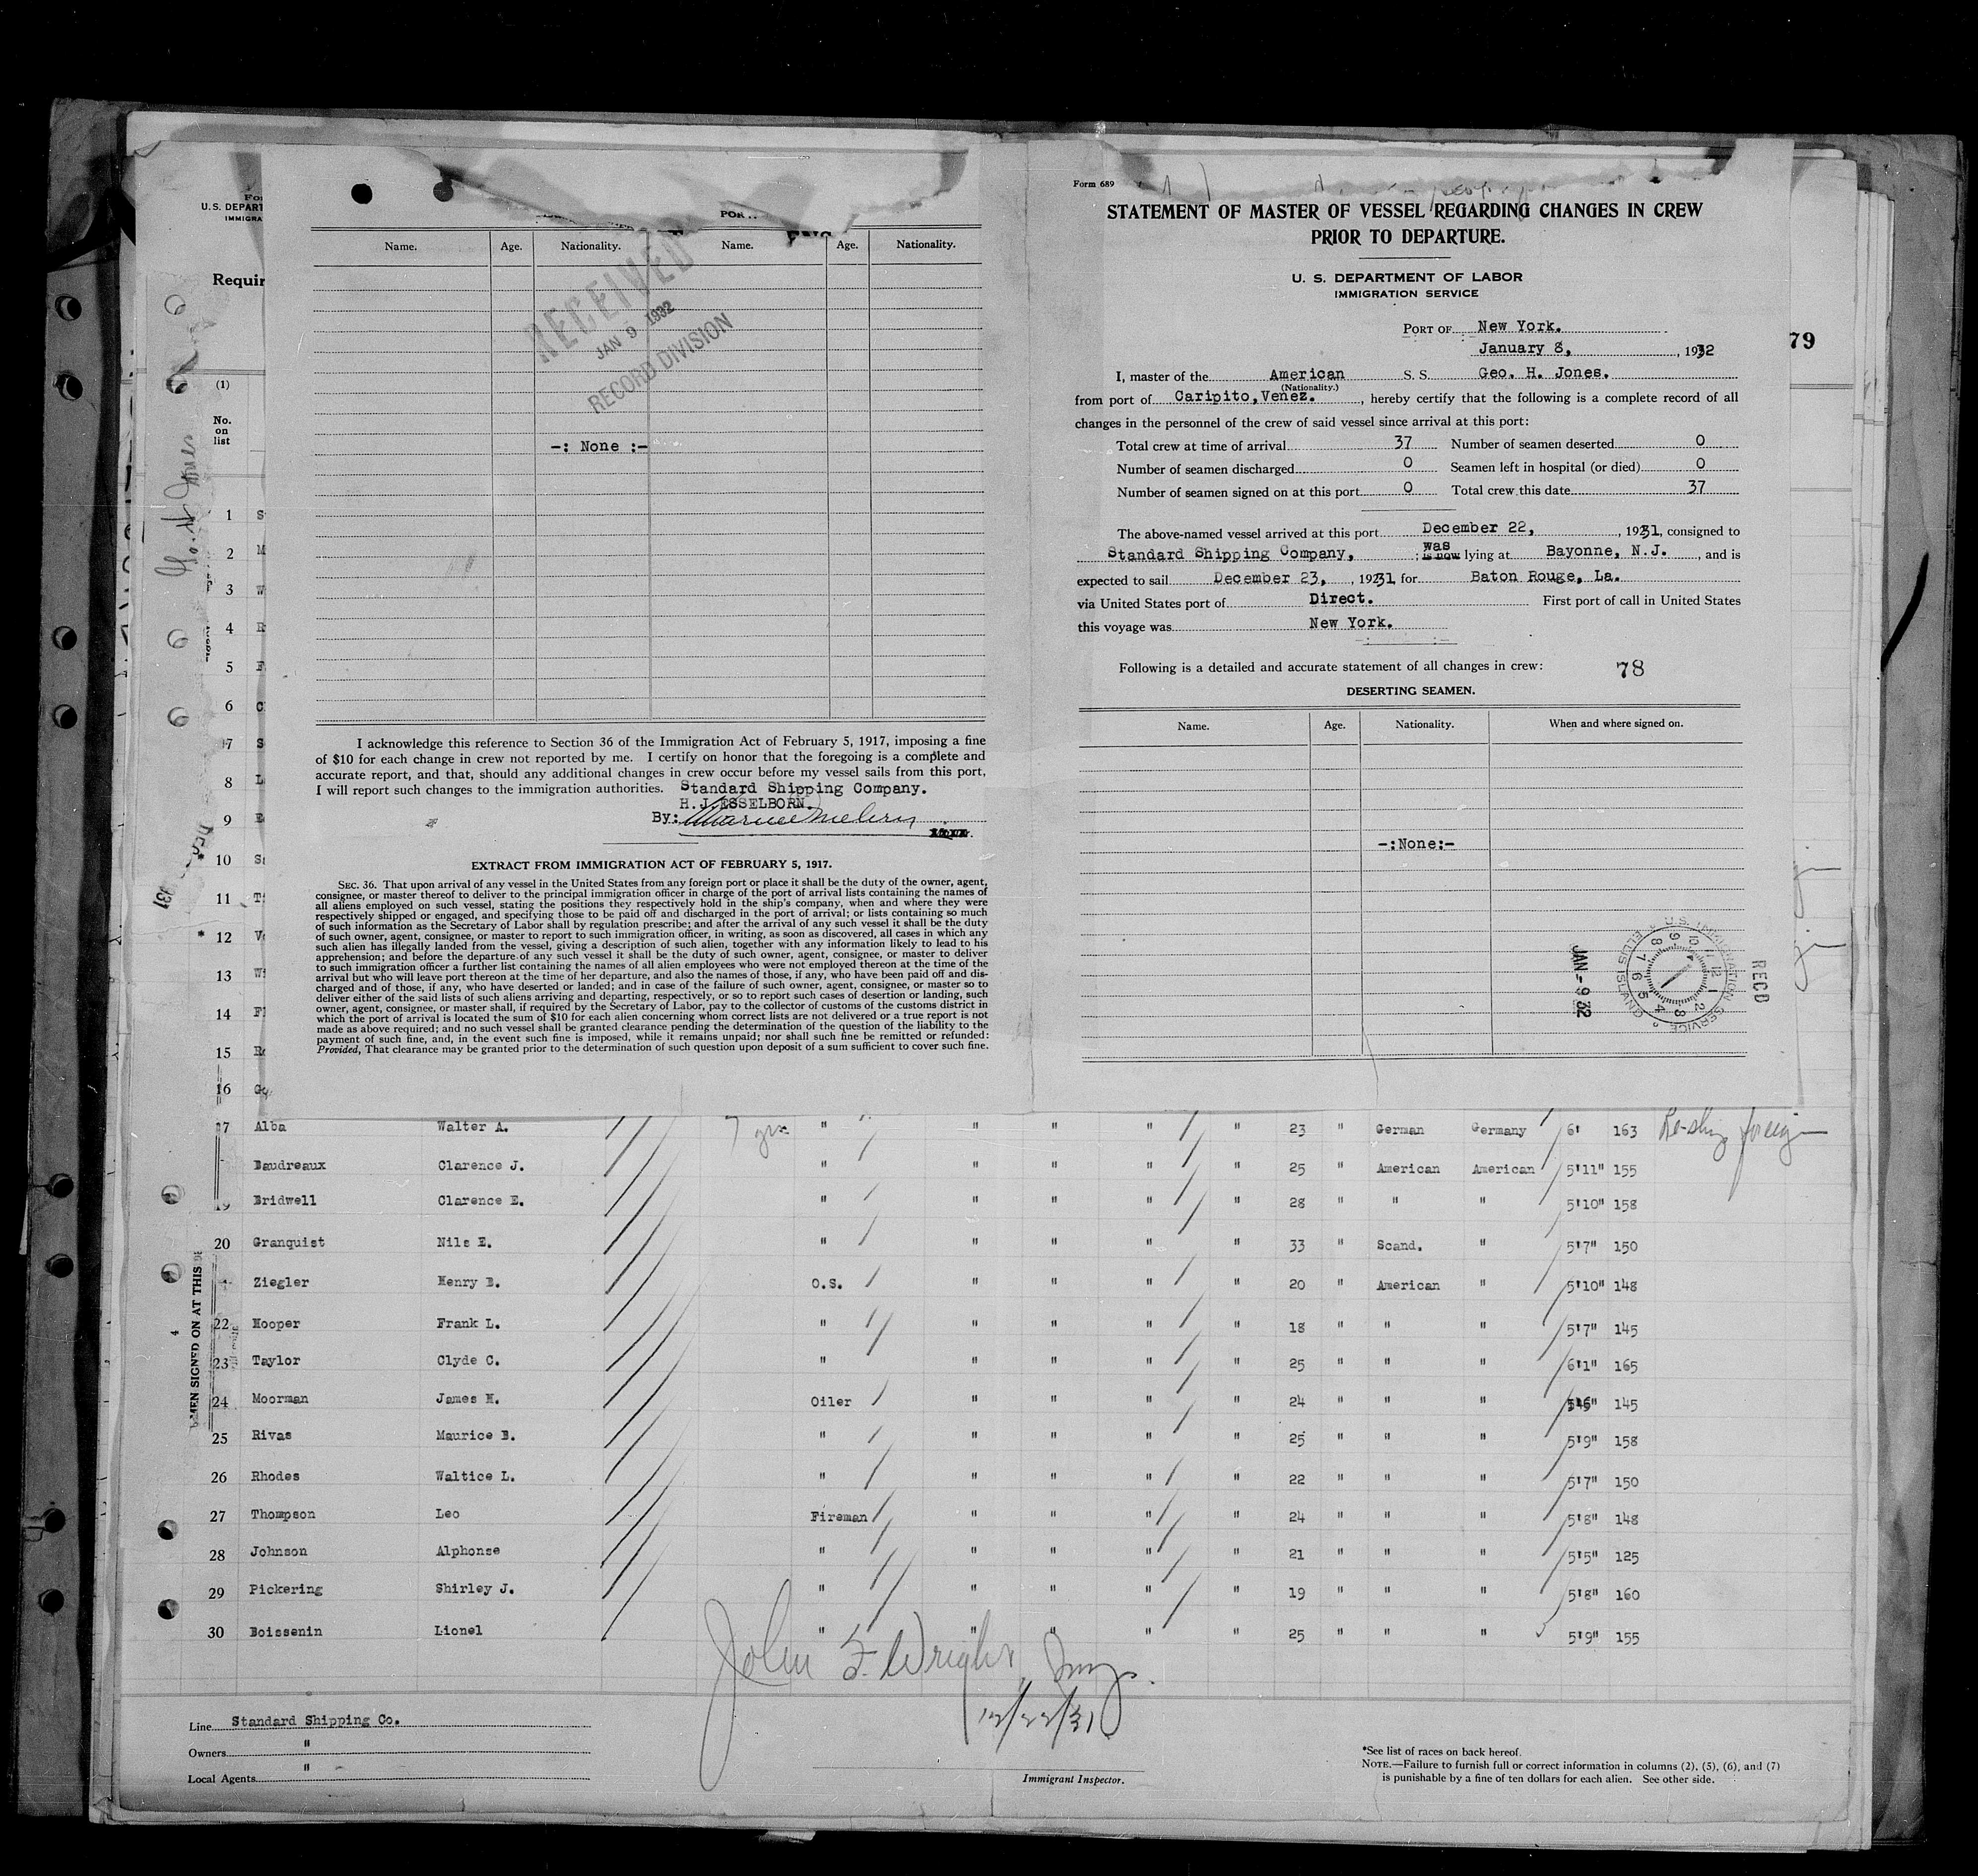 Form 689
STATEMENT OF MASTER OF VESSEL REGARDING CHANGES IN CREW
PRIOR TO DEPARTURE.
U. S. DEPARTMENT OF LABOR
IMMIGRATION SERVICE
PORT OF New York.
January 8, , 1932
I, master of the American S. S. Geo. H. Jones.
(Nationality.)
from port of Caripito, Venez. , hereby certify that the following is a complete record of all
changes in the personnel of the crew of said vessel since arrival at this port:
Total crew at time of arrival 37 Number of seamen deserted 0
Number of seamen discharged 0 Seamen left in hospital (or died) 0
Number of seamen signed on at this port 0 Total crew this date 37
The above-named vessel arrived at this port December 22, , 1931, consigned to
Standard Shipping Company, ; was is now lying at Bayonne, N.J. , and is
expected to sail December 23, , 1931 for Baton Rouge, La.
via United States port of Direct. First port of call in United States
this voyage was New York.
-: :-
Following is a detailed and accurate statement of all changes in crew: 78
DESERTING SEAMEN.
Name. Age. Nationality. When and where signed on.
-:None:-
U.S. IMMIGRATION SERVICE ELLIS ISLAND
JAN - 9 32
RECD
79
Name. Age. Nationality. Name. Age. Nationality.
RECEIVED
JAN 9 1932
RECORD DIVISION
-: None :-
I acknowledge this reference to Section 36 of the Immigration Act of February 5, 1917, imposing a fine
of $10 for each change in crew not reported by me. I certify on honor that the foregoing is a complete and
accurate report, and that, should any additional changes in crew occur before my vessel sails from this port,
I will report such changes to the immigration authorities. Standard Shipping Company.
H.J.ESSELBORN.
By:
EXTRACT FROM IMMIGRATION ACT OF FEBRUARY 5, 1917.
SEC. 36. That upon arrival of any vessel in the United States from any foreign port or place it shall be the duty of the owner, agent,
consignee, or master thereof to deliver to the principal immigration officer in charge of the port of arrival lists containing the names of
all aliens employed on such vessel, stating the positions they respectively hold in the ship's company, when and where they were
respectively shipped or engaged, and specifying those to be paid off and discharged in the port of arrival; or lists containing so much
of such information as the Secretary of Labor shall by regulation prescribe; and after the arrival of any such vessel it shall be the duty
of such owner, agent, consignee, or master to report to such immigration officer, in writing, as soon as discovered, all cases in which any
such alien has illegally landed from the vessel, giving a description of such alien, together with any information likely to lead to his
apprehension; and before the departure of any such vessel it shall be the duty of such owner, agent, consignee, or master to deliver
to such immigration officer a further list containing the names of all alien employees who were not employed thereon at the time of the
arrival but who will leave port thereon at the time of her departure, and also the names of those, if any, who have been paid off and dis-
charged and of those, if any, who have deserted or landed; and in case of the failure of such owner, agent, consignee, or master so to
deliver either of the said lists of such aliens arriving and departing, respectively, or so to report such cases of desertion or landing, such
owner, agent, consignee, or master shall, if required by the Secretary of Labor, pay to the collector of customs of the customs district in
which the port of arrival is located the sum of $10 for each alien concerning whom correct lists are not delivered or a true report is not
made as above required; and no such vessel shall be granted clearance pending the determination of the question of the liability to the
payment of such fine, and, in the event such fine is imposed, while it remains unpaid; nor shall such fine be remitted or refunded:
Provided, That clearance may be granted prior to the determination of such question upon deposit of a sum sufficient to cover such fine.
U. S. DEPART
IMMIGRA
Requir
(1)
No.
on
list
1 S
2 M
3 W
4
5 F
6
7 S
8 L
9
10 S
11 T
12 V
13 W
14 F
15
16 G
17 Alba Walter A. 7 yrs " " " " " 23 " German Germany 6' 163 Re-ship foreign
Baudreaux Clarence J. " " " " " 25 " American American 5'11" 155
19 Bridwell Clarence E. " " " " " 28 " " " 5'10" 158
20 Granquist Nils E. " " " " " 33 " Scand. " 5'7" 150
Ziegler Henry B. O.S. " " " " 20 " American " 5'10" 148
22 Hooper Frank L. " " " " " 18 " " " 5'7" 145
23 Taylor Clyde C. " " " " " 25 " " " 6'1" 165
24 Moorman James H. Oiler " " " " 24 " " " 5'6" 145
25 Rivas Maurice B. " " " " " 25 " " " 5'9" 158
26 Rhodes Waltice L. " " " " " 22 " " " 5'7" 150
27 Thompson Leo Fireman " " " " 24 " " " 5'8" 148
28 Johnson Alphonse " " " " " 21 " " " 5'5" 125
29 Pickering Shirley J. " " " " " 19 " " " 5'8" 160
30 Boissenin Lionel " " " " " 25 " " " 5'9" 155
MEN SIGNED ON AT THIS
John F. Wright
12/22/31
Immigrant Inspector.
Line Standard Shipping Co.
Owners "
Local Agents "
*See list of races on back hereof.
NOTE.—Failure to furnish full or correct information in columns (2), (5), (6), and (7)
is punishable by a fine of ten dollars for each alien. See other side.